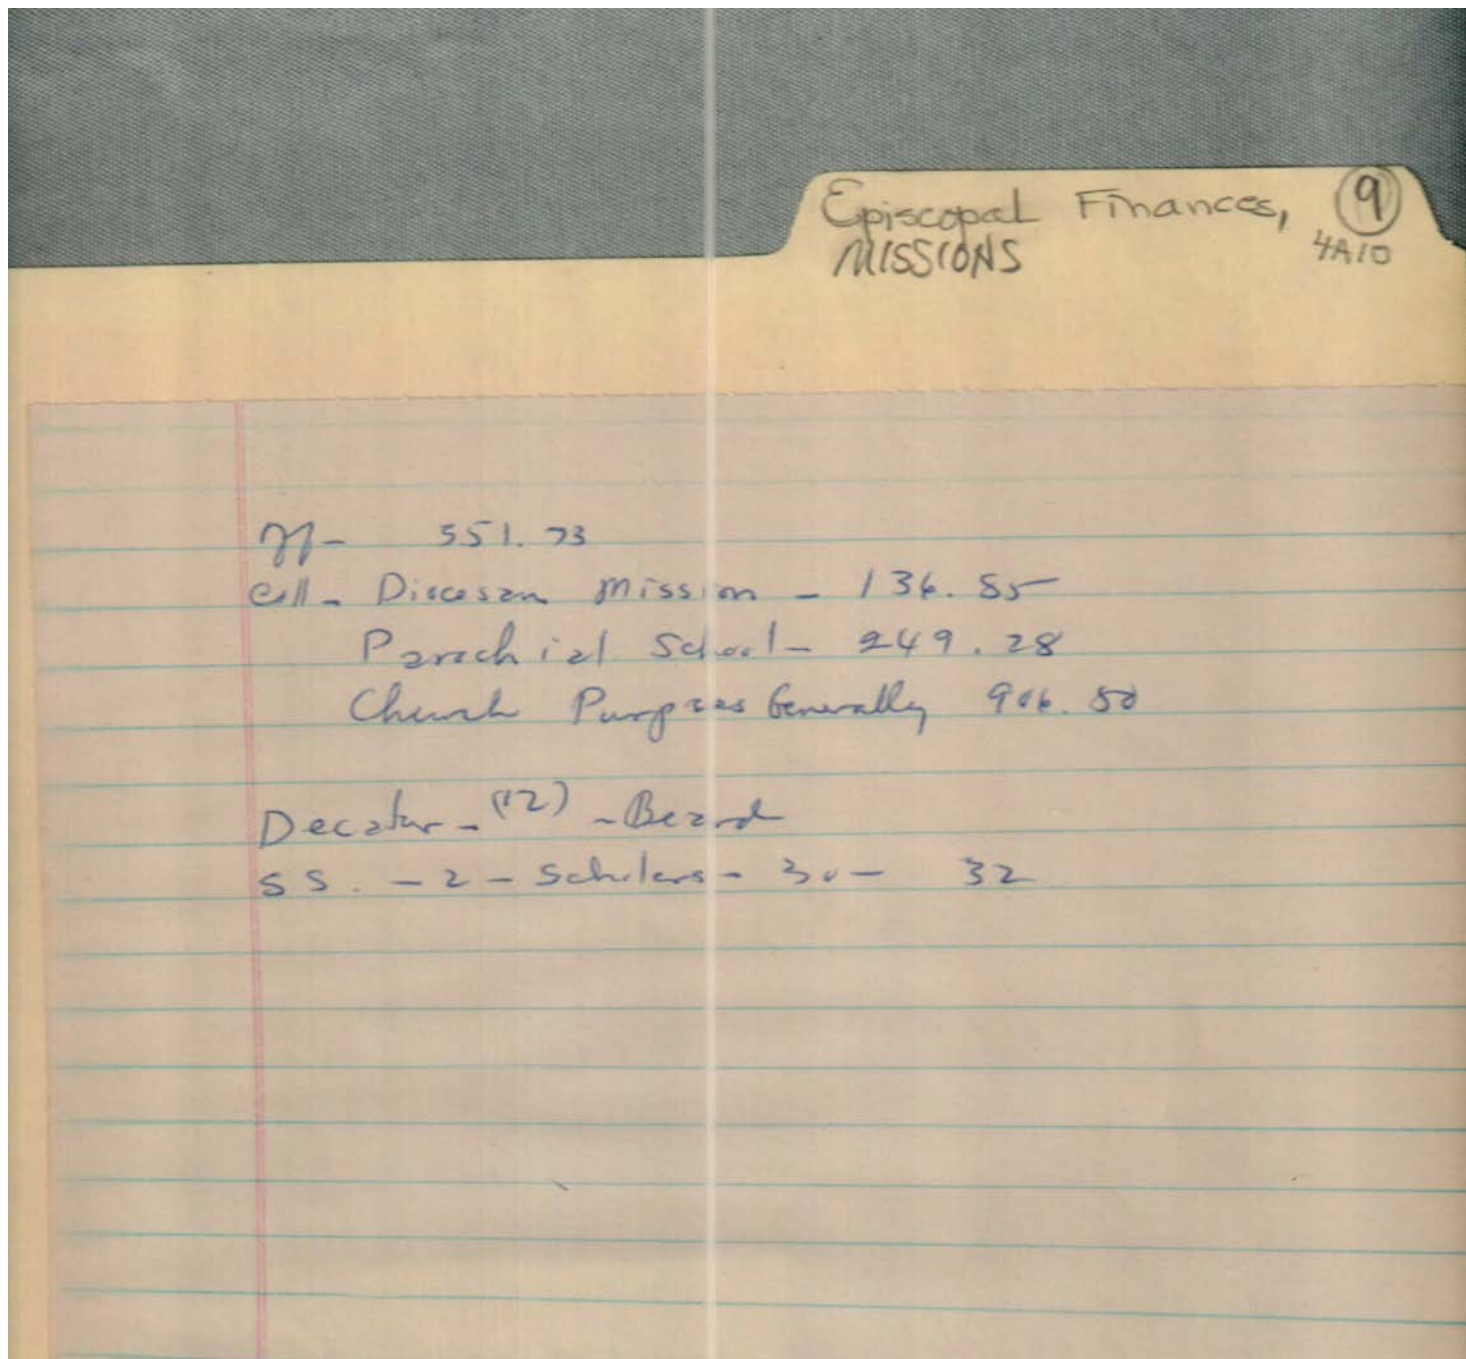 Episcopal Finances, 9
MISSIONS 4A10
551.73
Coll - Diocesan Mission - 136.85
Parochial School - 249.28
Church Purposes Generally 906.50
Decatur - (12) - Beard
SS. - 2 - Scholars - 30 - 32